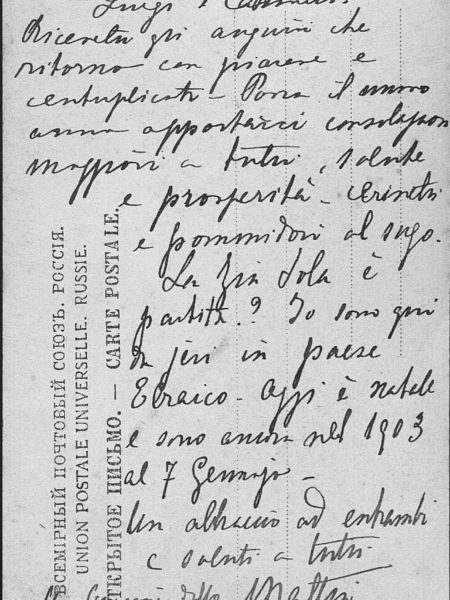 Luigi e
Ricevetti gli auguri che
ritorno con piacere e
centuplicati - Possa il nuovo
anno apportarci consolazioni
maggiori a tutti, salute
e prosperità - cerinetti
e pommidori al sugo.
La Zia Lola è
partita? Io sono qui
da jeri in paese
Ebraico - Oggi è natale
e sono ancora nel 1903
al 7 Gennajo -
Un abbraccio ad entrambi
e saluti a tutti
Mattia
ВСЕМІРНЫЙ ПОЧТОВЫЙ СОЮЗЪ. РОССІЯ.
UNION POSTALE UNIVERSELLE. RUSSIE.
ОТКРЫТОЕ ПИСЬМО. — CARTE POSTALE.